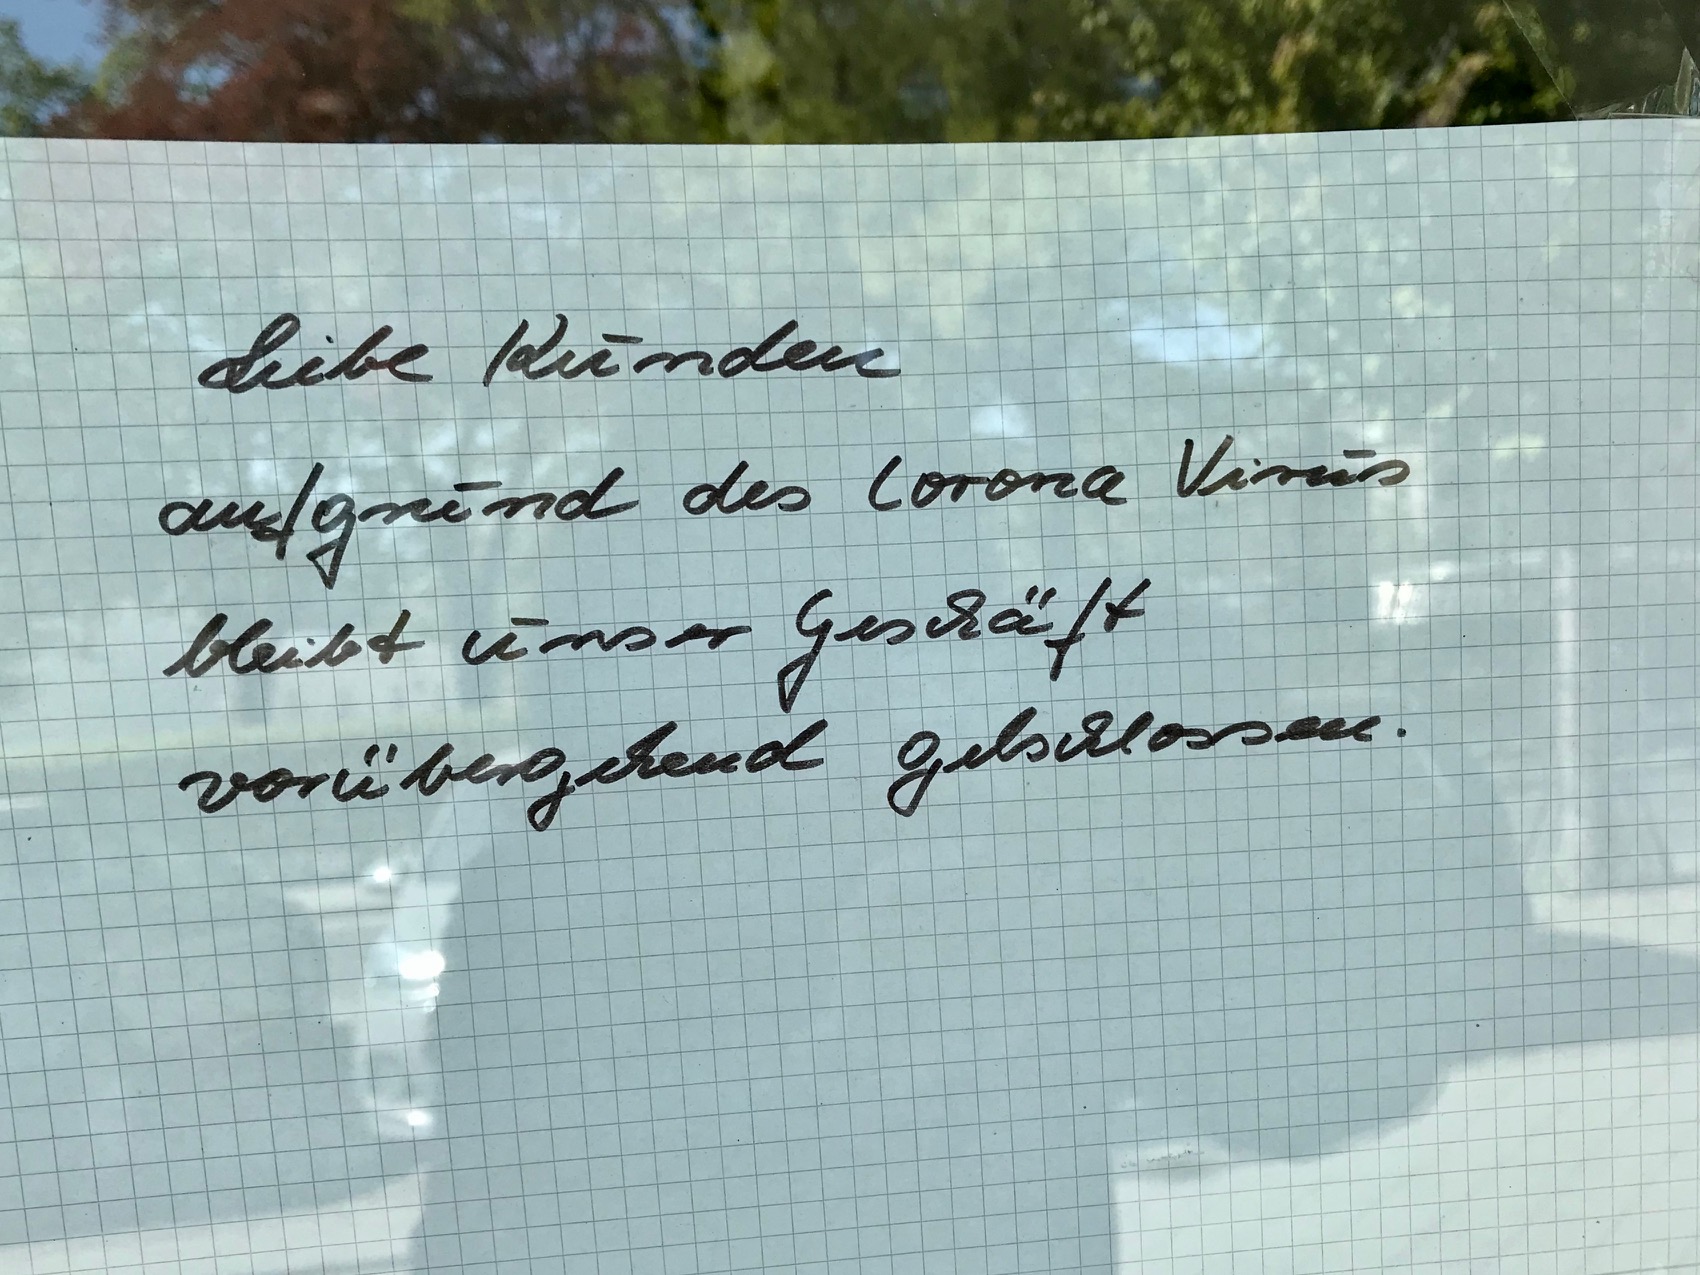 Leibe Kunden
aufgrund des Corona Virus
bleibt unser Geschäft
vorübergehend geschlossen.